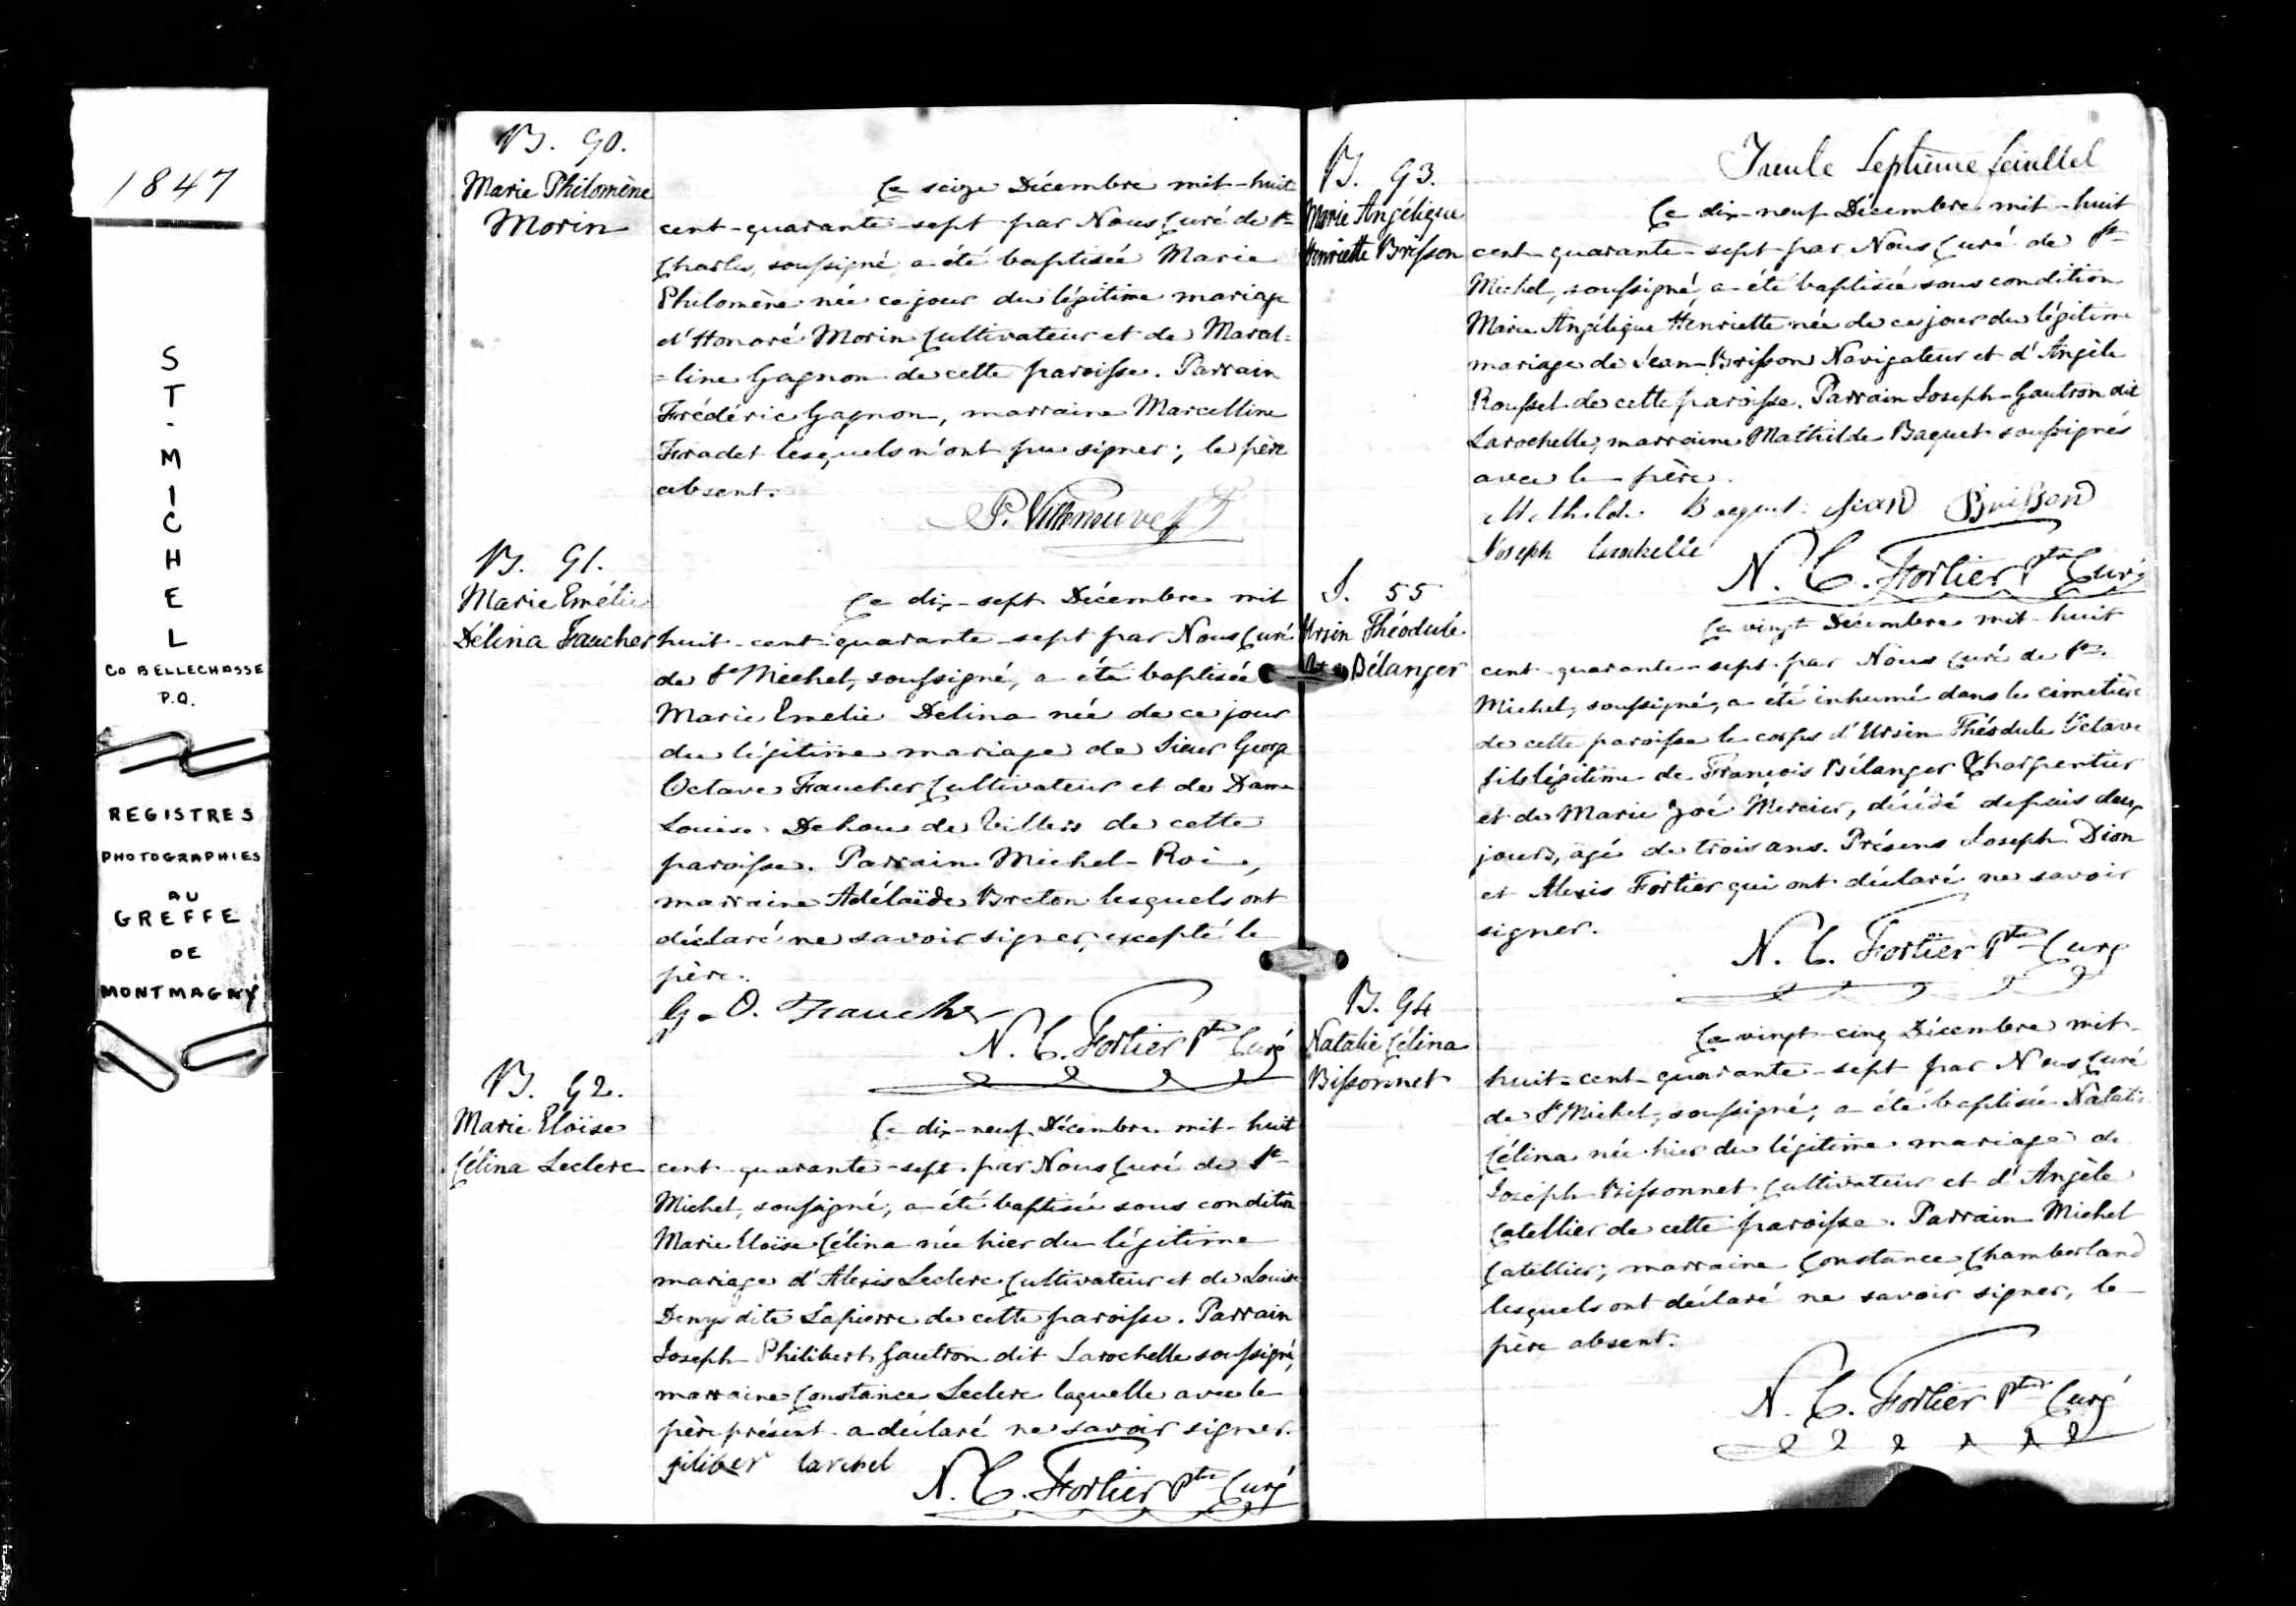 1847
ST. MICHEL
CO BELLECHASSE
P.Q.
REGISTRES
PHOTOGRAPHIES
AU
GREFFE
DE
MONTMAGNY
B. 90.
Marie Philomène
Morin
Ce seize Décembre mil-huit
cent-quarante-sept par Nous Curé de St
Charles, soussigné, a été baptisée Marie
Philomène née ce jour du légitime mariage
d'Honoré Morin Cultivateur et de Marcel=
=line Gagnon de cette paroisse. Parrain
Frédéric Gagnon, marraine Marcelline
Fradet lesquels n'ont pu signer; le père
absent.
P. Villeneuve Ptr
B. 91.
Marie Emélie
Délina Faucher
Ce dix-sept Décembre mil
huit-cent-quarante-sept par Nous Curé
de St Michel, soussigné, a été baptisée
Marie Emelie Delina née de ce jour
du légitime mariage de Sieur George
Octave Faucher Cultivateur et de Dame
Louise Dehou de Villers de cette
paroisse. Parrain Michel Roi,
marraine Adélaïde Breton lesquels ont
déclaré ne savoir signer, excepté le
père.
G. O. Faucher
N. C. Fortier Ptre Curé
B. 92.
Marie Eloïse
Célina Leclerc
Ce dix-neuf Décembre mil-huit
cent-quarante-sept par Nous Curé de St
Michel, soussigné, a été baptisée sous condition
Marie Eloïse Célina née hier du légitime
mariage d'Alexis Leclerc Cultivateur et de Louise
Denys dite Lapierre de cette paroisse. Parrain
Joseph Philibert Gautron dit Larochelle soussigné,
marraine Constance Leclerc laquelle avec le
père présent a déclaré ne savoir signer.
filiber larchel
N. C. Fortier Ptre Curé
Trente Septieme feuillet
B. 93.
Marie Angélique
Henriette Brisson
Ce dix-neuf Décembre mil-huit
cent-quarante-sept par Nous Curé de St
Michel, soussigné, a été baptisée sous condition
Marie Angélique Henriette née de ce jour du légitime
mariage de Jean Brisson Navigateur et d'Angèle
Roussel de cette paroisse. Parrain Joseph Gautron dit
Larochelle, marraine Mathilde Baquet soussignés
avec le père.
Mathilde Baquet Jean Brisson
Joseph Larochelle
N. C. Fortier Ptre Curé
S. 55
Ursin Théodule
Bélanger
Ce vingt Décembre mil-huit
cent-quarante-sept par Nous Curé de St
Michel, soussigné, a été inhumé dans le cimetière
de cette paroisse le corps d'Ursin Théodule Octave
fils légitime de François Bélanger Charpentier
et de Marie Zoé Mercier, décédé depuis deux
jours, agé de trois ans. Présens Joseph Dion
et Alexis Fortier qui ont déclaré ne savoir
signer.
N. C. Fortier Ptre Curé
B. 94
Natalie Célina
Bissonnet
Ce vingt-cinq Décembre mil-
huit-cent-quarante-sept par Nous Curé
de St Michel, soussigné, a été baptisée Natalie
Célina née hier du légitime mariage de
Joseph Bissonnet Cultivateur et d'Angèle
Catellier de cette paroisse. Parrain Michel
Catellier; marraine Constance Chamberland
lesquels ont déclaré ne savoir signer, le
père absent.
N. C. Fortier Ptre Curé